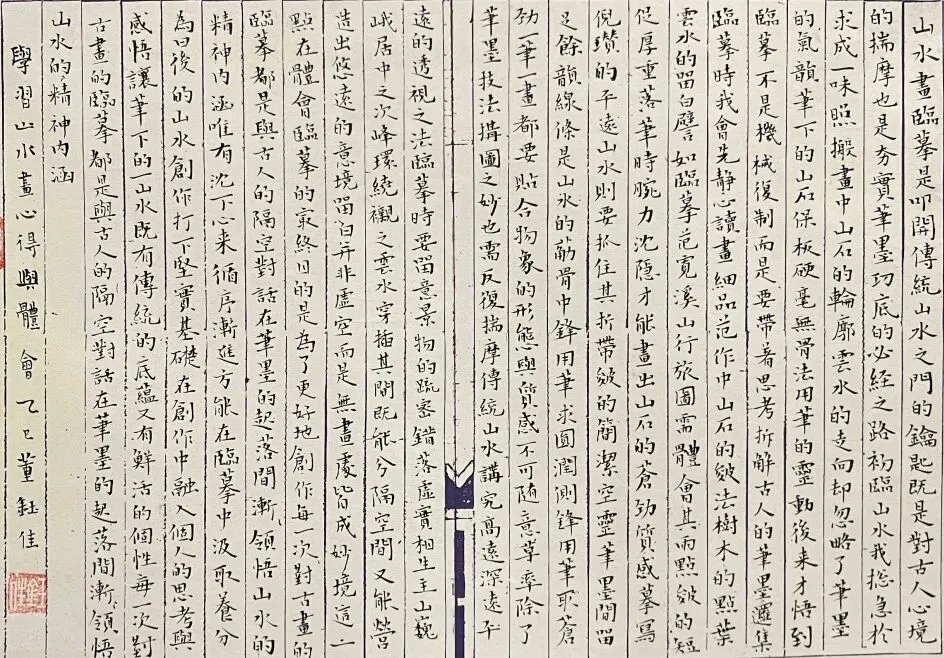 山水畫臨摹是叩開傳統山水之門的鑰匙既是對古人心境
的揣摩也是夯實筆墨功底的必经之路初臨山水我總急於
求成一味照搬畫中山石的輪廓雲水的走向却忽略了筆墨
的氣韻筆下的山石保板硬毫無骨法用筆的靈動後来才悟到
臨摹不是機械復制而是要帶著思考拆解古人的筆墨邏集
臨摹時我會先静心讀畫細品范作中山石的皴法樹木的點葉
雲水的留白譬如臨摹范寬溪山行旅圖需體會其雨點皴的短
促厚重落筆時腕力沈隐才能畫出山石的蒼劲質感摹寫
倪瓚的平遠山水則要抓住其折帶皴的簡潔空靈筆墨間留
足餘韻線條是山水的筋骨中鋒用筆求圓潤測鋒用筆取蒼
劲一筆一畫都要貼合物象的形態與質感不可随意草率除了
筆墨技法構圖之妙也需反復揣摩傳統山水講究高遠深遠平
遠的透視之法臨摹時要留意景物的疏密錯落虚實相生主山巍
峨居中之次峰環繞襯之雲水穿插其間既能分隔空間又能營
造出悠遠的意境留白并非虚空而是無畫處皆成妙境這一
點在體會臨摹的最终目的是為了更好地創作每一次對古畫的
臨摹都是與古人的隔空對話在筆墨的起落間漸領悟山水的
精神内涵唯有沈下心来循序漸進方能在臨摹中汲取養分
為日後的山水創作打下堅實基礎在創作中融入個人的思考與
感悟讓筆下的一山水既有傳統的底蘊又有鮮活的個性每一次對
古畫的臨摹都是與古人的隔空對話在筆墨的起落間漸領悟
山水的精神内涵
學習山水畫心得與體會乙巳董鈺佳